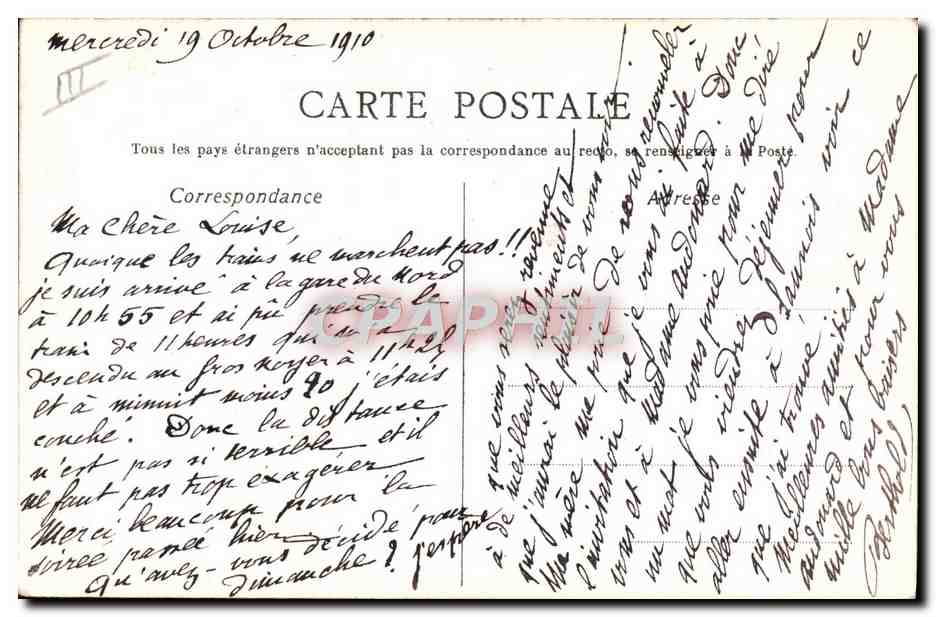 mercredi 19 Octobre 1910
III
CARTE POSTALE
Tous les pays étrangers n'acceptent pas la correspondance au recto, se renseigner à la Poste.
Correspondance
Adresse
Ma Chère Louise,
Quoique les trains ne marchent pas !!
je suis arrivé à la gare du Nord
à 10h 55 et ai pû prendre le
train de 11 heures qui m'a
descendu au Gros Noyer à 11h 25
et à minuit moins 20 j'étais
couché. Donc la distance
n'est pas si terrible et il
ne faut pas trop exagérer
Merci beaucoup pour la
soirée passée hier
Qu'avez-vous décidé pour
dimanche ? J'espère
que vous serez revenue
à de meilleurs sentiments et
que j'aurai le plaisir de vous voir.
Ma mère me prie de vous renouveler
l'invitation que je vous ai faite à
vous et à Madame Audonard. Donc
un mot je vous prie pour me dire
que vous viendrez déjeuner pour
aller ensuite à Launois voir ce
que j'ai trouvé.
Meilleures amitiés à Madame
Audonard et pour vous
mille bons baisers
Berthold
CPAPHIL